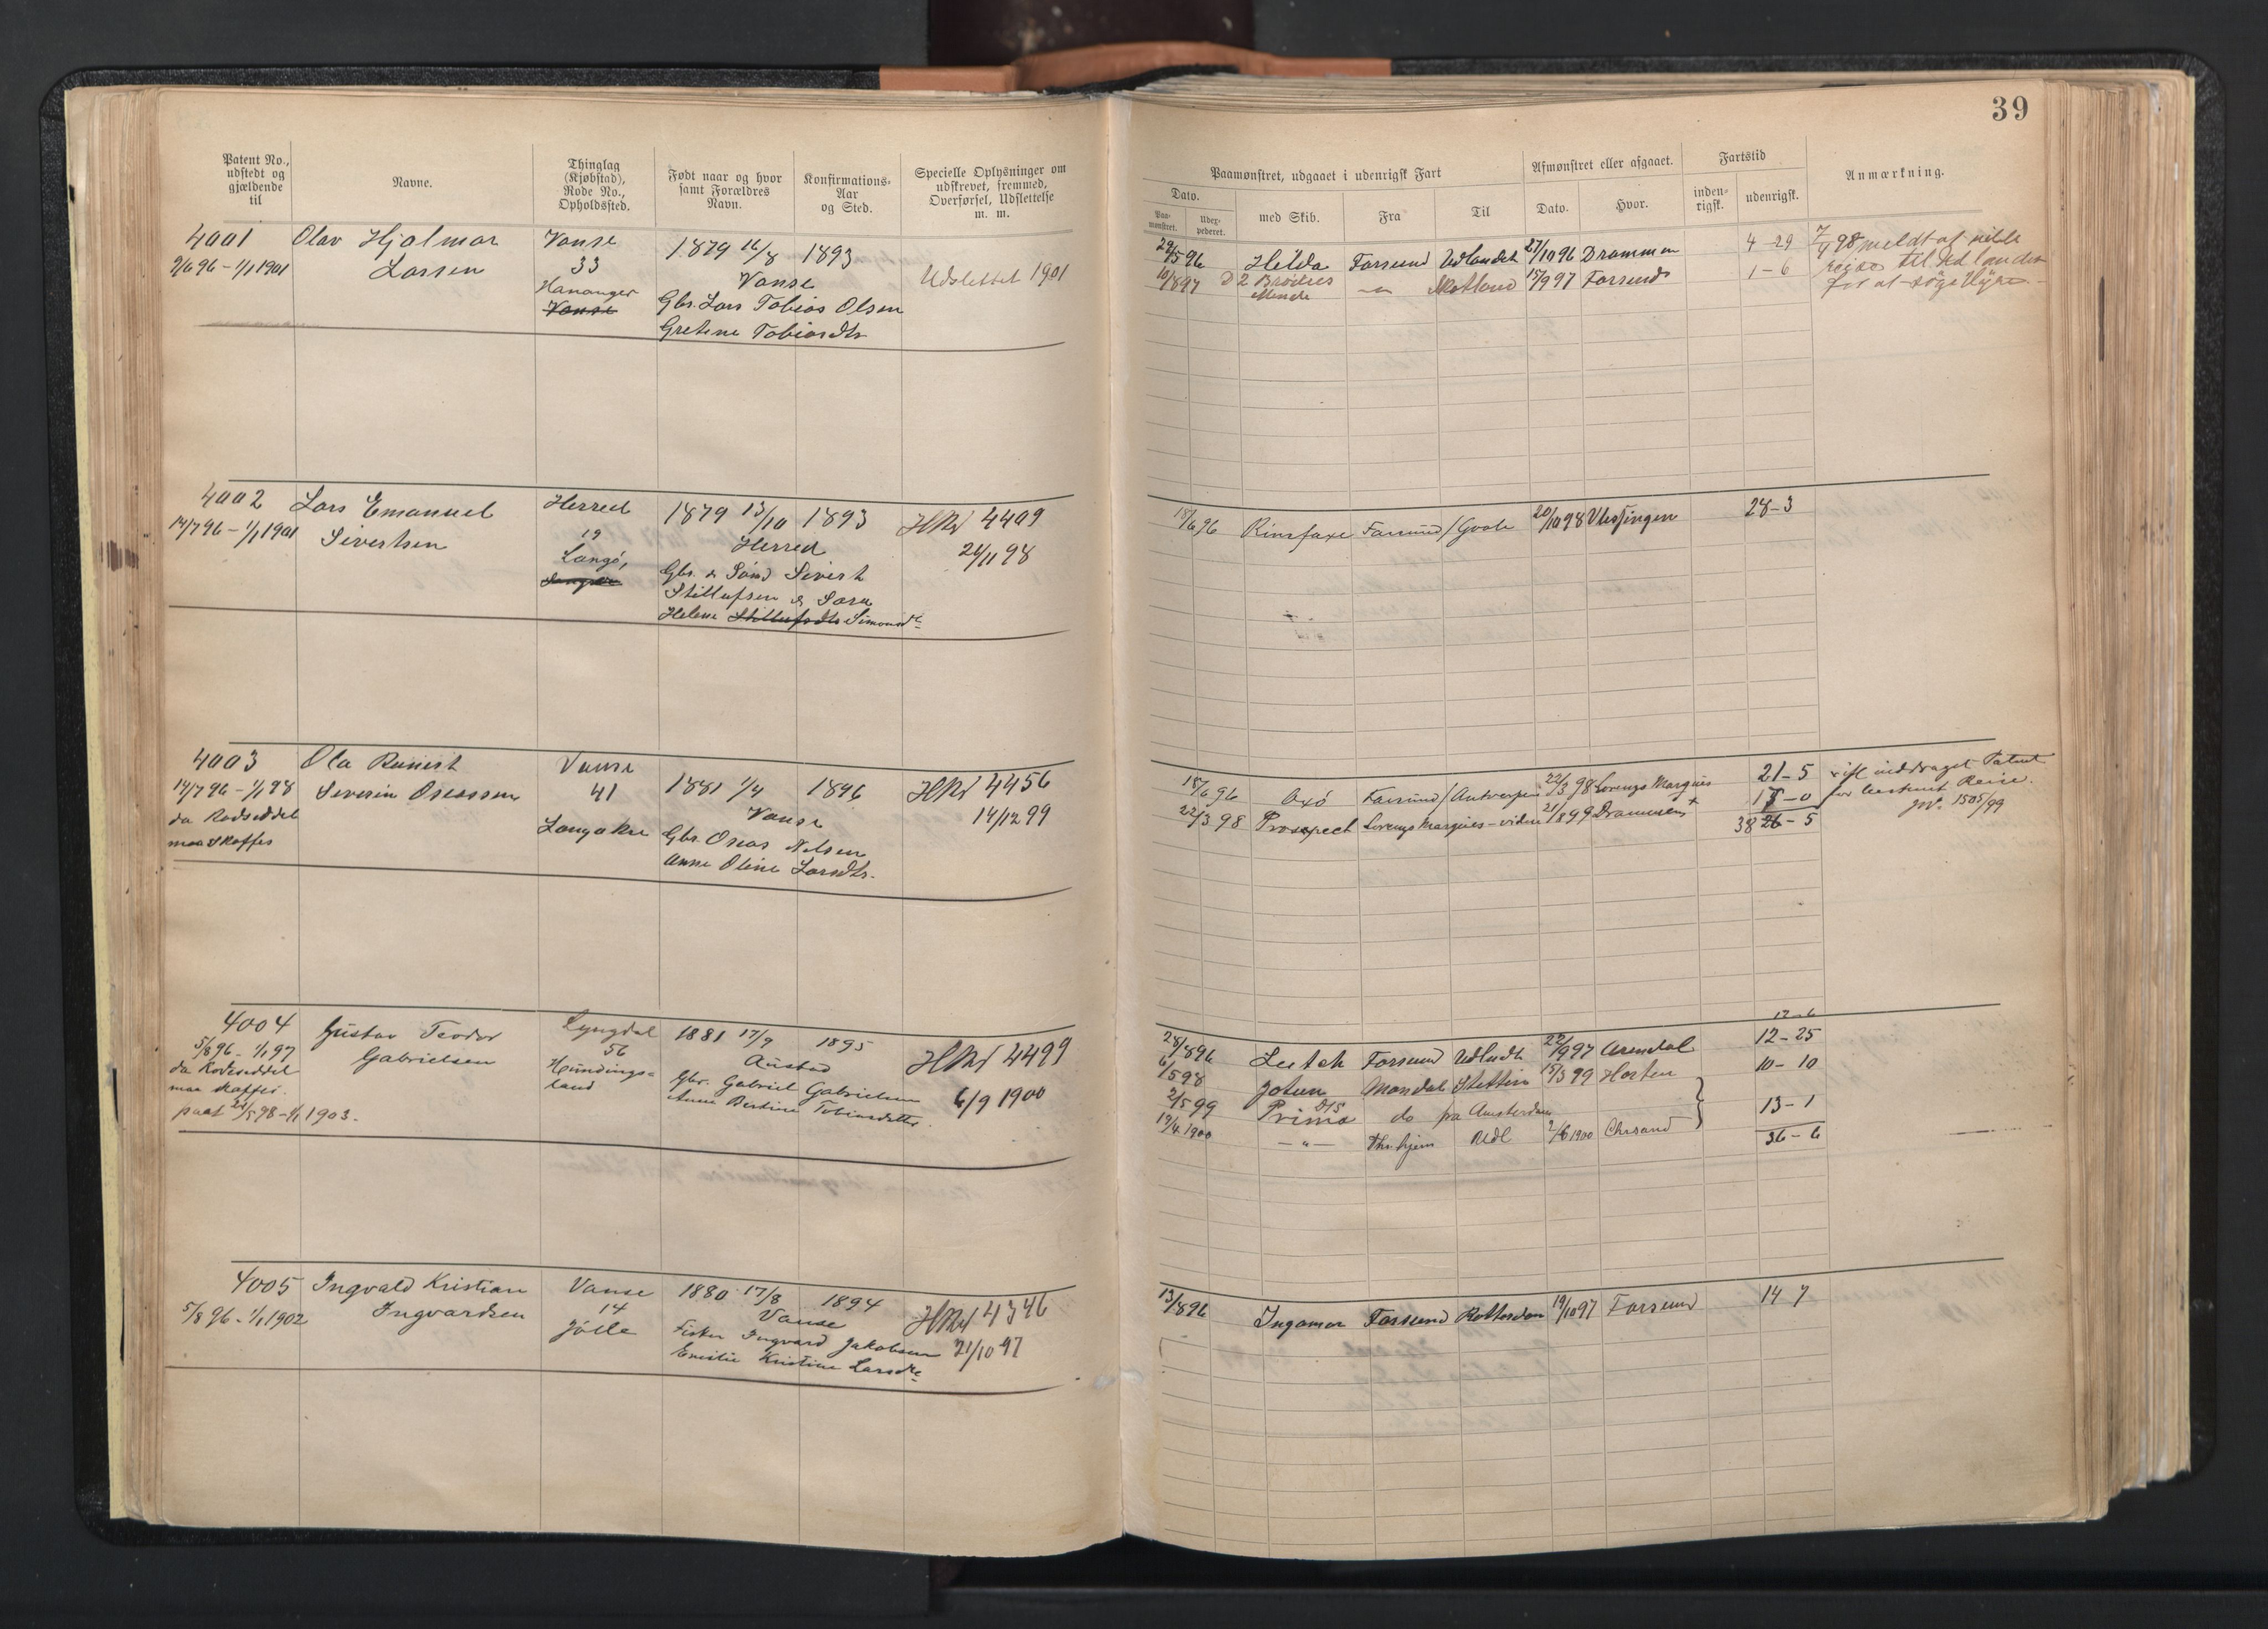 39
Patent No., udstedt og gjældende til
Navne.
Thinglag (Kjøbstad), Rode No., Opholdssted.
Født naar og hvor samt Forældres Navn.
Konfirmations-Aar og Sted.
Specielle Oplysninger om udskrevet, fremmed, Overførsel, Udslettelse m. m.
Paamønstret, udgaaet i udenrigsk Fart
Afmønstret eller afgaaet.
Fartstid
Anmærkning.
Dato.
Paa-mønstret.
Udex-pederet.
med Skib.
Fra
Til
Dato.
Hvor.
inden-rigsk.
udenrigsk.
4001 Olav Hjalmar Vanse 1879 16/8 1893
2/6 96 - 1/1 1901 Larsen 33 Vanse Udslettet 1901
Hananger Gbr. Lars Tobias Olsen
Vanse Gretine Tobiasdtr
29/5 96 Hilda Farsund Udlandet 27/10 96 Drammen 4-29
10/8 97 D 2 Brødres Minde - " - Skotland 15/9 97 Farsund 1-6
7/4 98 meldt at ville
rejse til Udlandet
for at søge Hyre.
4002 Lars Emanuel Herred 1879 13/10 1893 HRJ 4409
14/7 96 - 1/1 1901 Sivertsen 19 Herred 24/11 98
Langø, Gbr. & Sømd Sivert
Stillufsen & Sara
Helene Stillufsdtr Simonsdtr
18/6 96 Rimfaxe Farsund / Goole 20/10 98 Vlissingen 28-3
4003 Ola Reinert Vanse 1881 1/4 1896 HRJ 4456
14/7 96 - 1/1 98 Severin Oseassen 41 Vanse 14/12 99
da Rodseddel Langaker Gbr. Oseas Nilsen
maa skaffes Anne Oline Larsdtr.
18/6 96 Oxö Farsund / Antwerpen 22/3 98 Lorenzo Marques 21-5
22/3 98 Prospect Lorenzo Marques - videre 21/8 99 Drammen + 17-0
38 26-5
+ ifl inddraget Patent
for bestemt Reise.
JN. 1505/99
4004 Gustav Teodor Lyngdal 1881 17/9 1895 HRJ 4499
5/8 96 - 1/1 97 Gabrielsen 56 Austad 6/9 1900
da Rodeseddel Hundings=
maa skaffes. land Gbr. Gabriel Gabrielsen
paat 24/5 98 - 1/1 1903. Anne Bertine Tobiasdatter.
12-6
28/8 96 Leitch Farsund Udlndt 22/9 97 Arendal 12-25
6/5 98 Jotun Mandal Stettin 15/3 99 Horten 10-10
2/5 99 Prima D/S do fra Amsterdam 13-1
19/4 1900 - " - Thr.hjem Udl 2/6 1900 Chrsand 36-6
4005 Ingvald Kristian Vanse 1880 17/8 1894 HRJ 4346
5/8 96 - 1/1 1902 Ingvardsen 14 Vanse 21/10 97
Jølle Fisker Ingvard Jakobsen
Emilie Kristine Larsdtr
13/8 96 Ingomar Farsund Rotterdam 19/10 97 Farsund 14 7